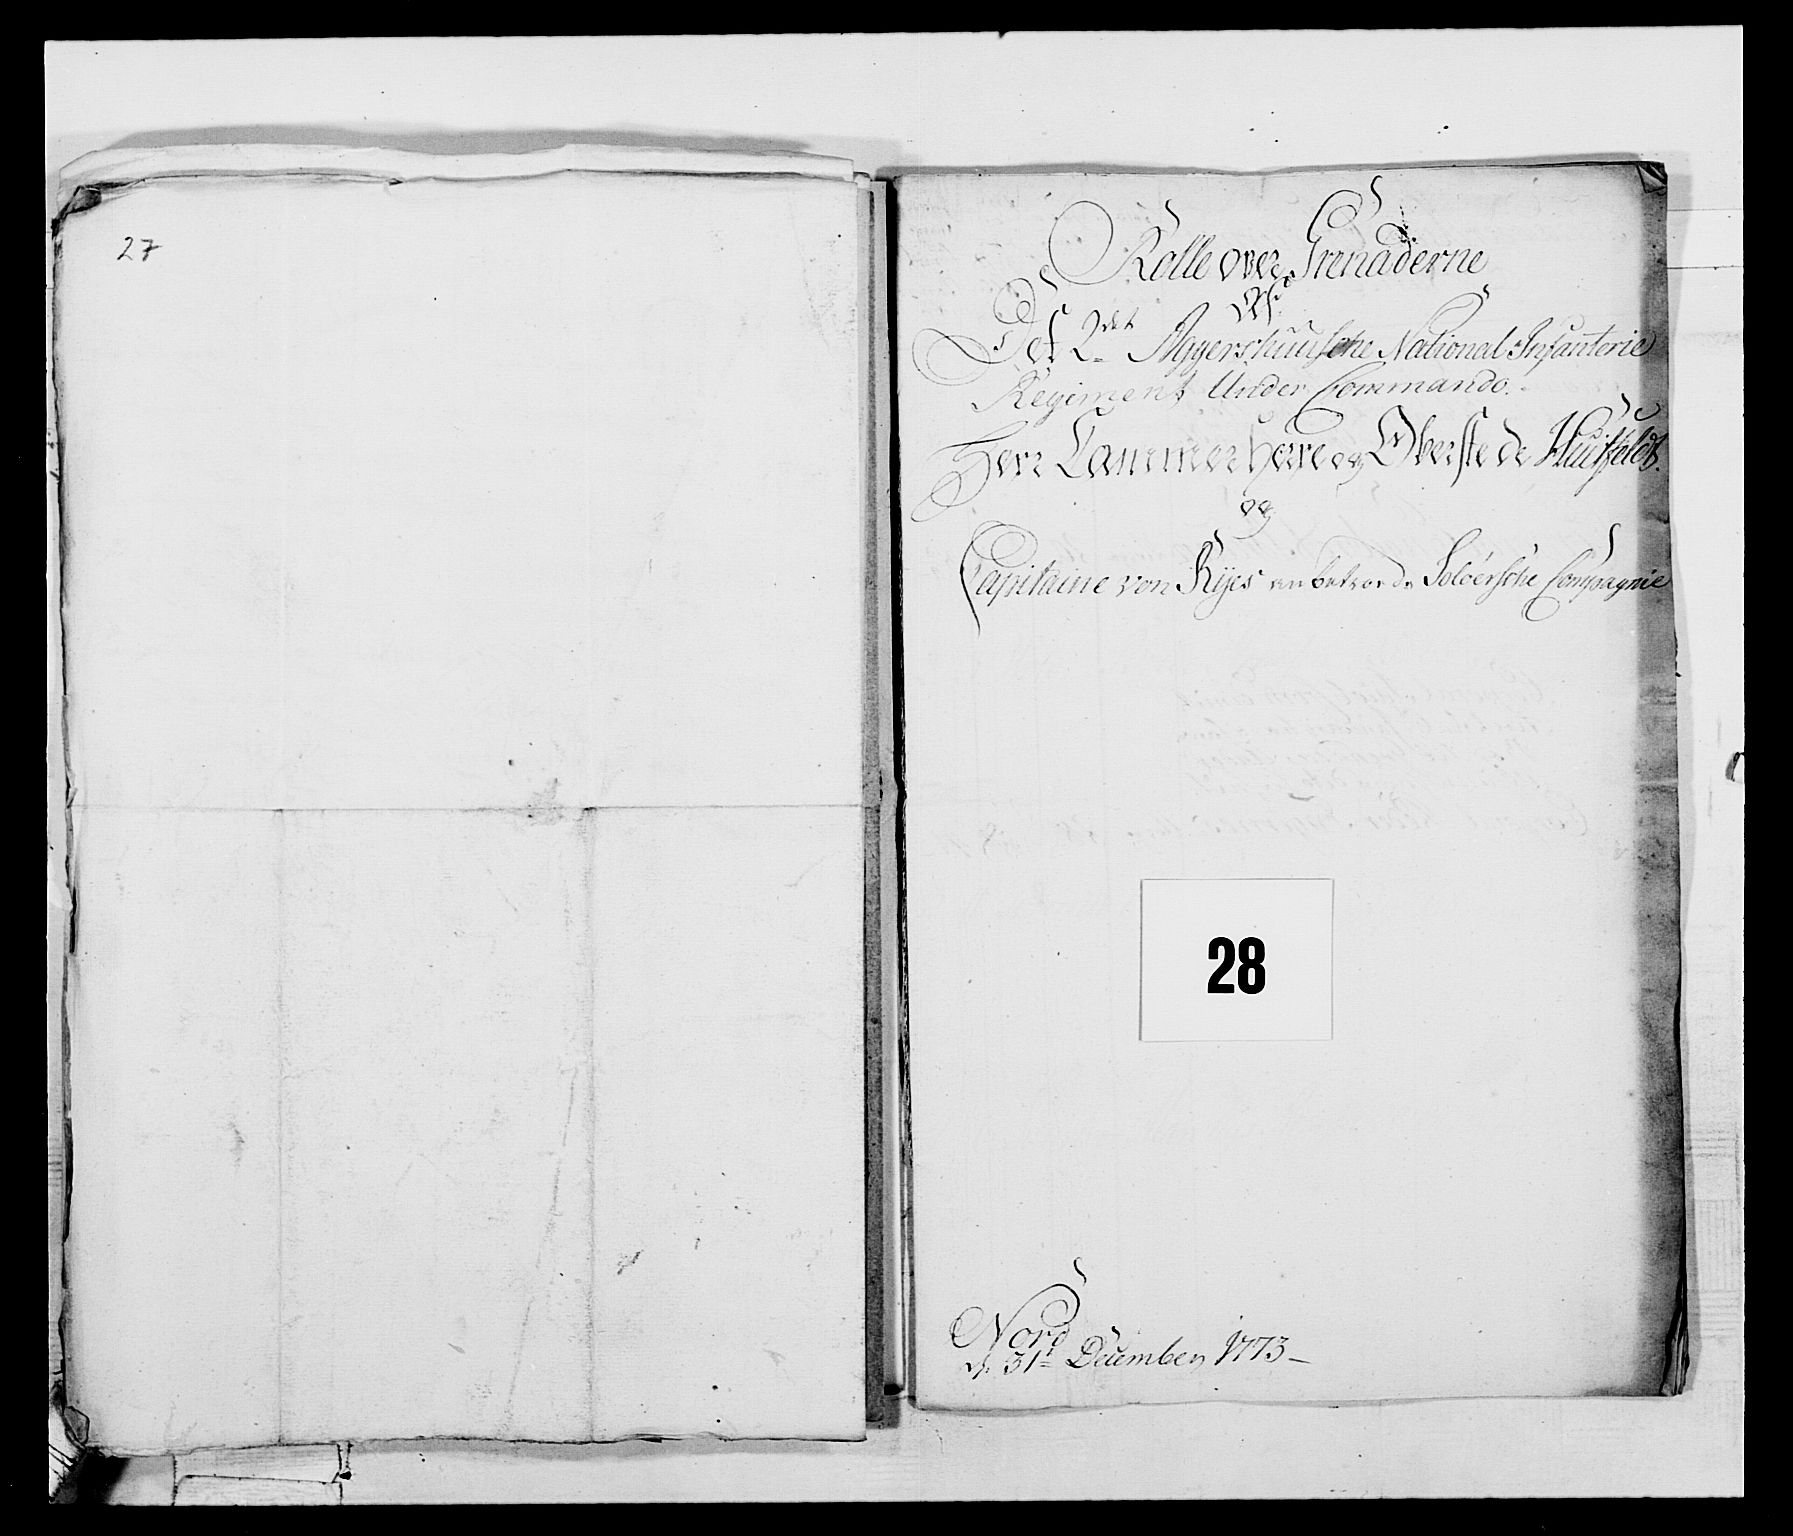 27
Rolle over Grenaderne
Af
Det 2det Aggershuusche National Infanterie
Regiment Under Commando.
Herr Cammer Herre og Oberste de Huitfeldt.
og
Capitaine von Kyes anbetroede Soloersche Compagnie
28
Nord
d. 31te December 1773